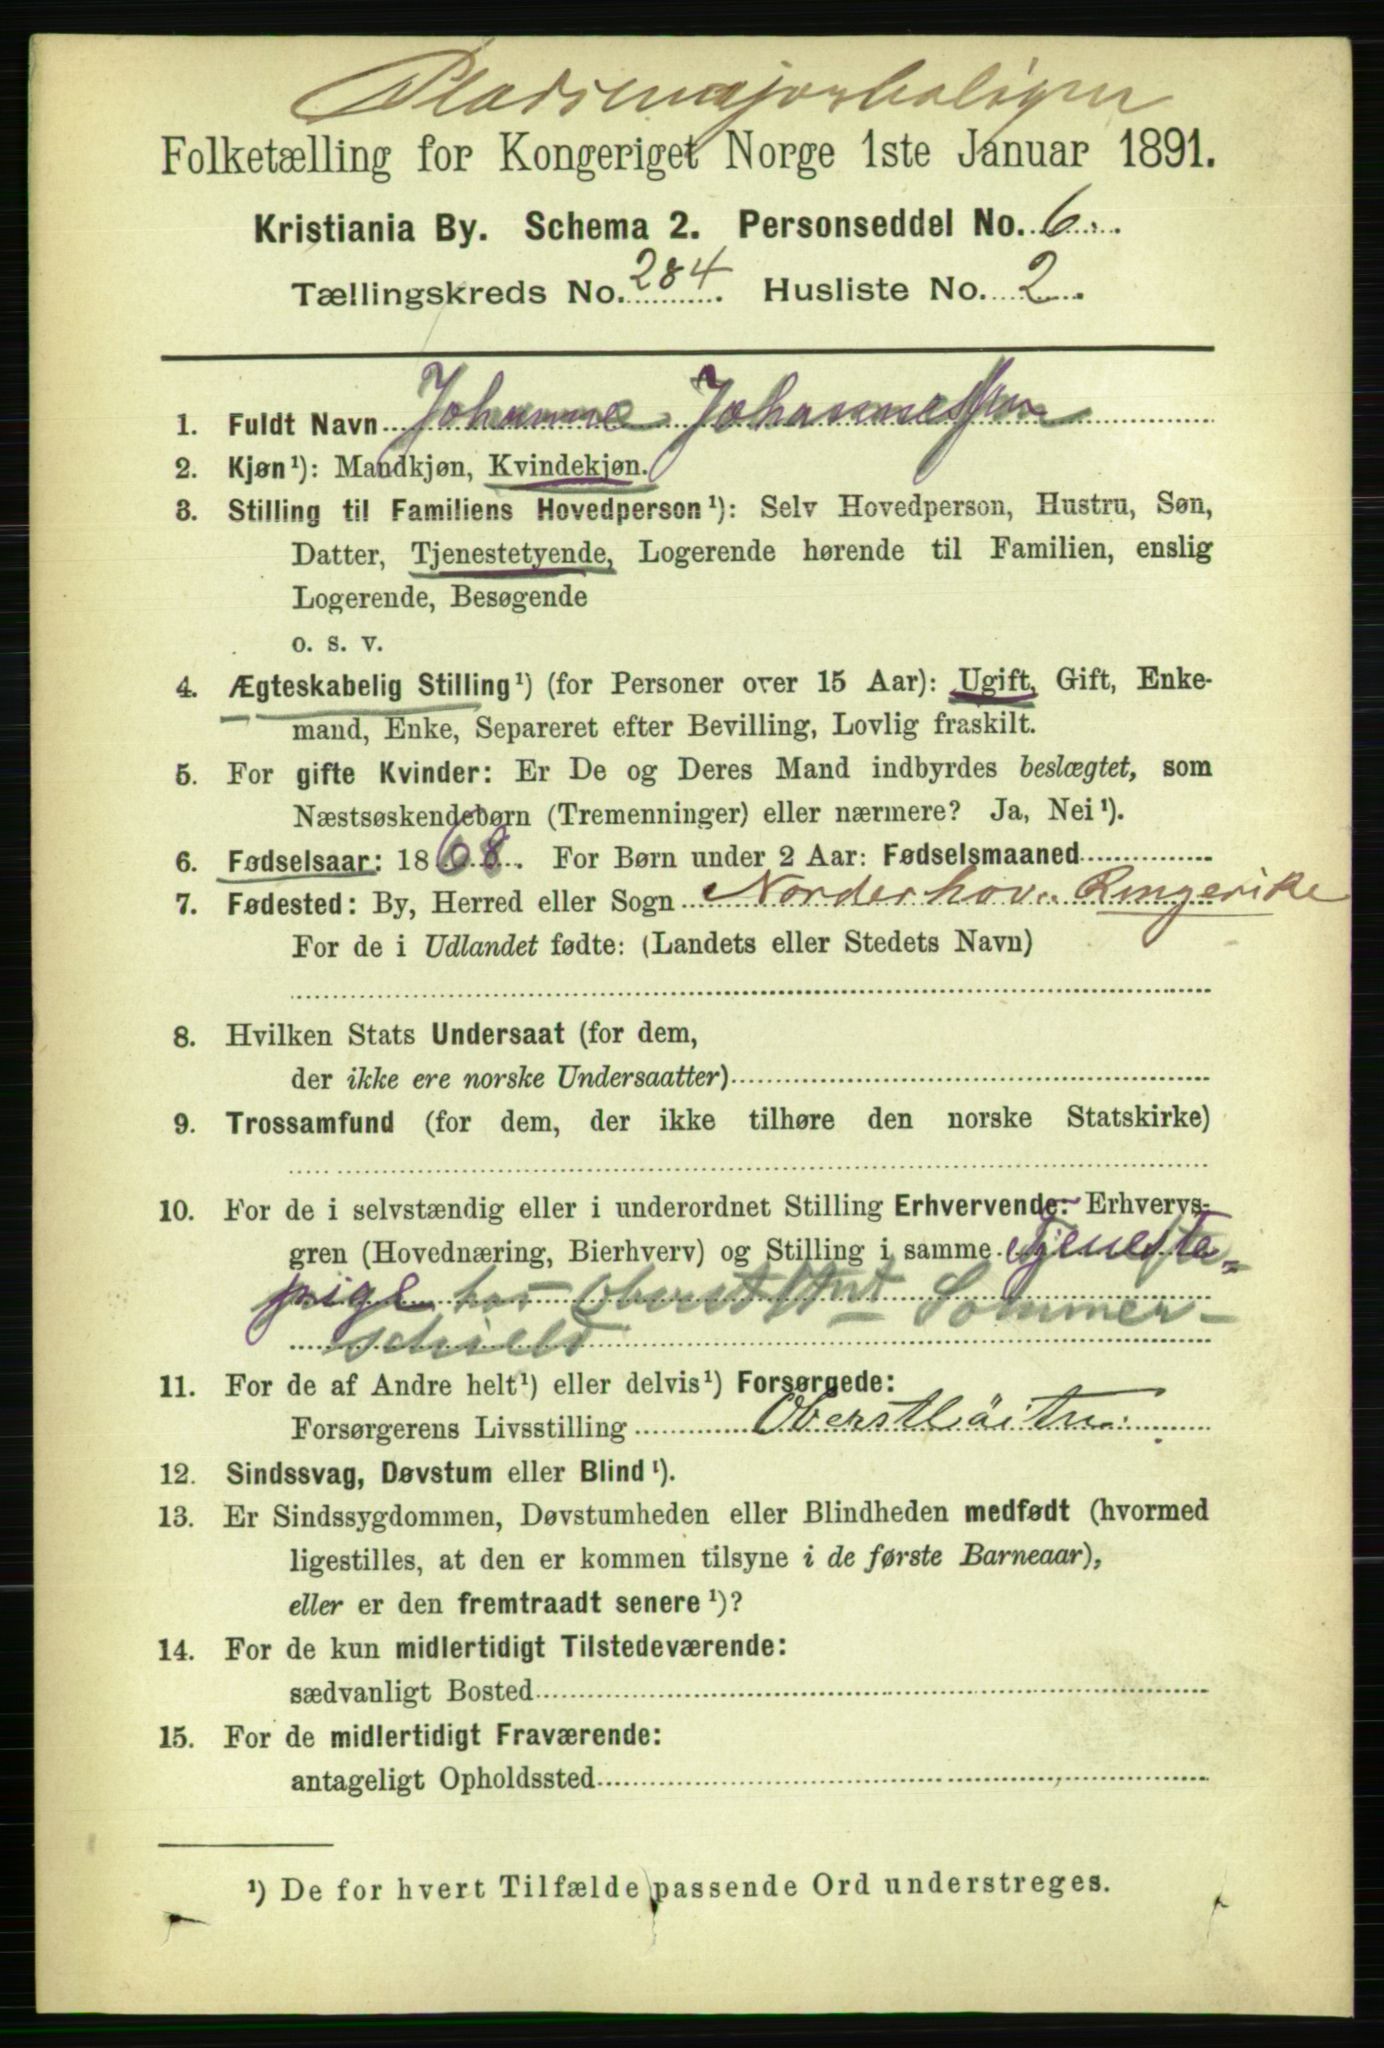 Pladsmajorboligen
Folketælling for Kongeriget Norge 1ste Januar 1891.
Kristiania By. Schema 2. Personseddel No. 6.
Tællingskreds No. 284. Husliste No. 2.
1. Fuldt Navn Johanne Johannessen
2. Kjøn¹): Mandkjøn, Kvindekjøn.
3. Stilling til Familiens Hovedperson¹): Selv Hovedperson, Hustru, Søn,
Datter, Tjenestetyende, Logerende hørende til Familien, enslig
Logerende, Besøgende
o. s. v.
4. Ægteskabelig Stilling¹) (for Personer over 15 Aar): Ugift, Gift, Enke-
mand, Enke, Separeret efter Bevilling, Lovlig fraskilt.
5. For gifte Kvinder: Er De og Deres Mand indbyrdes beslægtet, som
Næstsøskendebørn (Tremenninger) eller nærmere? Ja, Nei¹).
6. Fødselsaar: 1868. For Børn under 2 Aar: Fødselsmaaned
7. Fødested: By, Herred eller Sogn Norderhov. Ringerike
For de i Udlandet fødte: (Landets eller Stedets Navn)
8. Hvilken Stats Undersaat (for dem,
der ikke ere norske Undersaatter)
9. Trossamfund (for dem, der ikke tilhøre den norske Statskirke)
10. For de i selvstændig eller i underordnet Stilling Erhvervende: Erhvervs-
gren (Hovednæring, Bierhverv) og Stilling i samme Tjeneste-
pige hos Oberstltnt Sommer-
schield
11. For de af Andre helt¹) eller delvis¹) Forsørgede:
Forsørgerens Livsstilling Oberstløitn:
12. Sindssvag, Døvstum eller Blind¹).
13. Er Sindssygdommen, Døvstumheden eller Blindheden medfødt (hvormed
ligestilles, at den er kommen tilsyne i de første Barneaar),
eller er den fremtraadt senere¹)?
14. For de kun midlertidigt Tilstedeværende:
sædvanligt Bosted
15. For de midlertidigt Fraværende:
antageligt Opholdssted
¹) De for hvert Tilfælde passende Ord understreges.